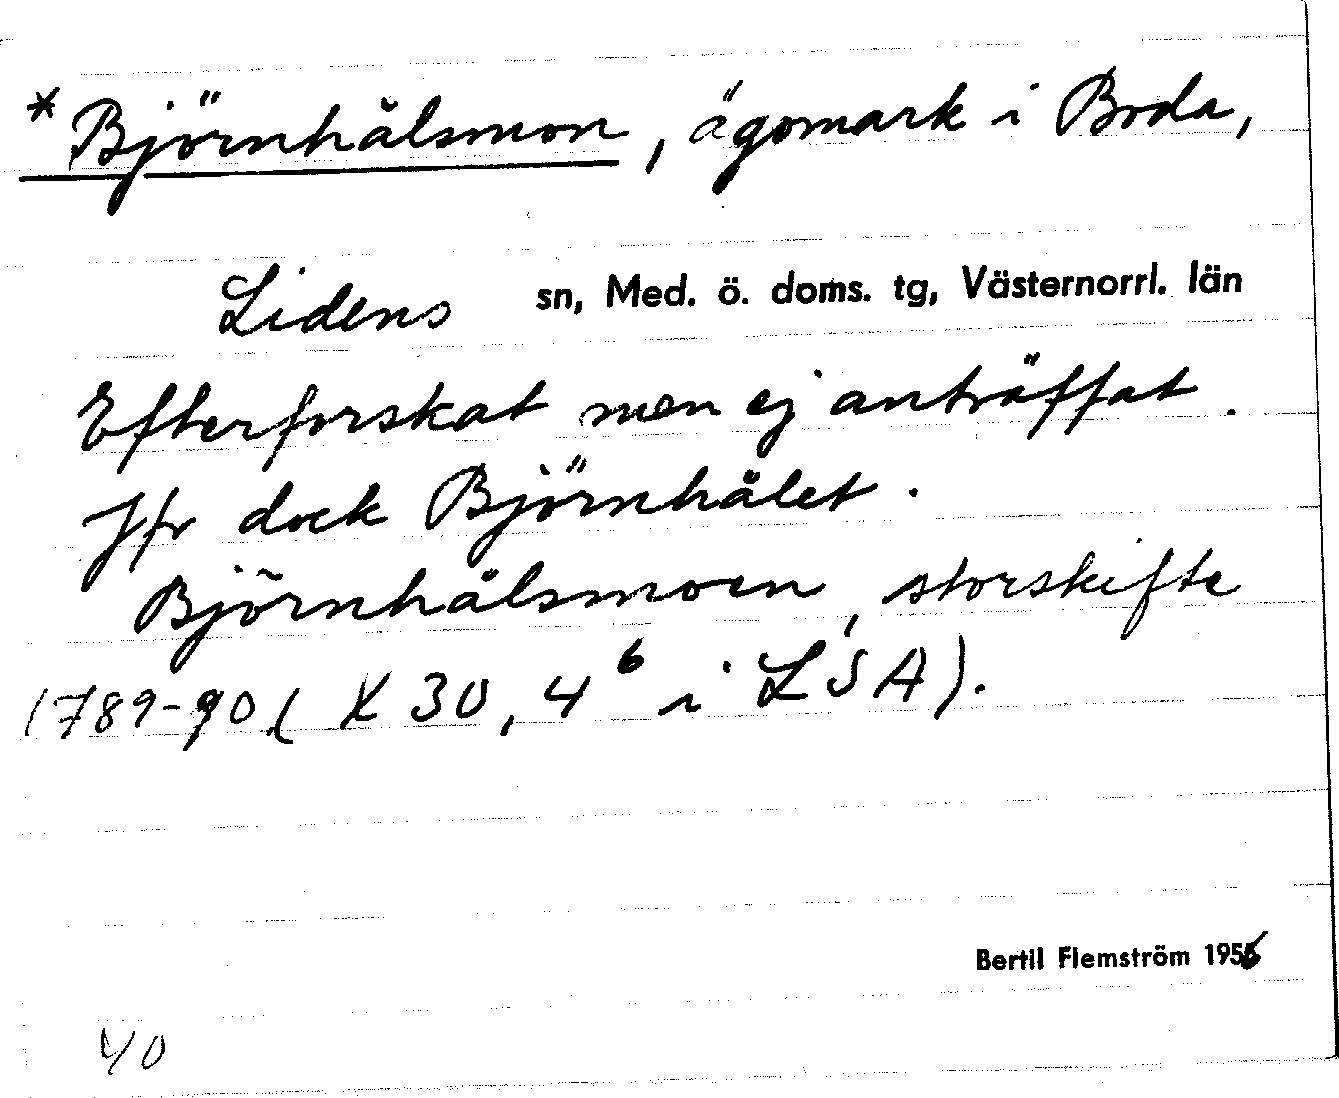 * Björnhålsmon, ägomark i Boda,
Lidens sn, Med. ö. doms. tg, Västernorrl. län
Efterforskat men ej anträffat.
Jfr dock Björnhålet.
Björnhålsmoen, storskifte
1789-90 (X 30, 4⁶ i LSA).
Bertil Flemström 1956
40